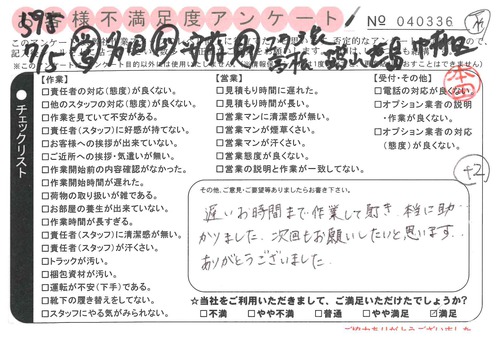 お客様不満足度アンケート
No 040336
7/5
チェックリスト
【作業】
□責任者の対応(態度)が良くない。
□他のスタッフの対応(態度)が良くない。
□作業を見ていて不安がある。
□責任者(スタッフ)に好感が持てない。
□お客様への挨拶が出来ていない。
□ご近所への挨拶・気遣いが無い。
□作業開始前の内容確認がなかった。
□作業開始時間が遅れた。
□荷物の取り扱いが雑である。
□お部屋の養生が出来ていない。
□作業時間が長すぎる。
□責任者(スタッフ)に清潔感が無い。
□責任者(スタッフ)が汗くさい。
□トラックが汚い。
□梱包資材が汚い。
□運転が不安(下手)である。
□靴下の履き替えをしてない。
□スタッフにやる気がみられない。
【営業】
□見積もり時間に遅れた。
□見積もり時間が長い。
□営業マンに清潔感が無い。
□営業マンが煙草くさい。
□営業マンが汗くさい。
□営業態度が良くない。
□営業の説明と作業が一致してない。
【受付・その他】
□電話の対応が良くない
□オプション業者の説明
・作業が良くない。
□オプション業者の対応
(態度)が良くない。
+2
その他、ご意見・ご要望等ありましたらお書き下さい。
遅いお時間まで作業して頂き、本当に助
かりました。次回もお願いしたいと思います。
ありがとうございました。
☆当社をご利用いただきまして、ご満足いただけたでしょうか?
□不満 □やや不満 □普通 □やや満足 ☑満足
ご協力ありがとうございました